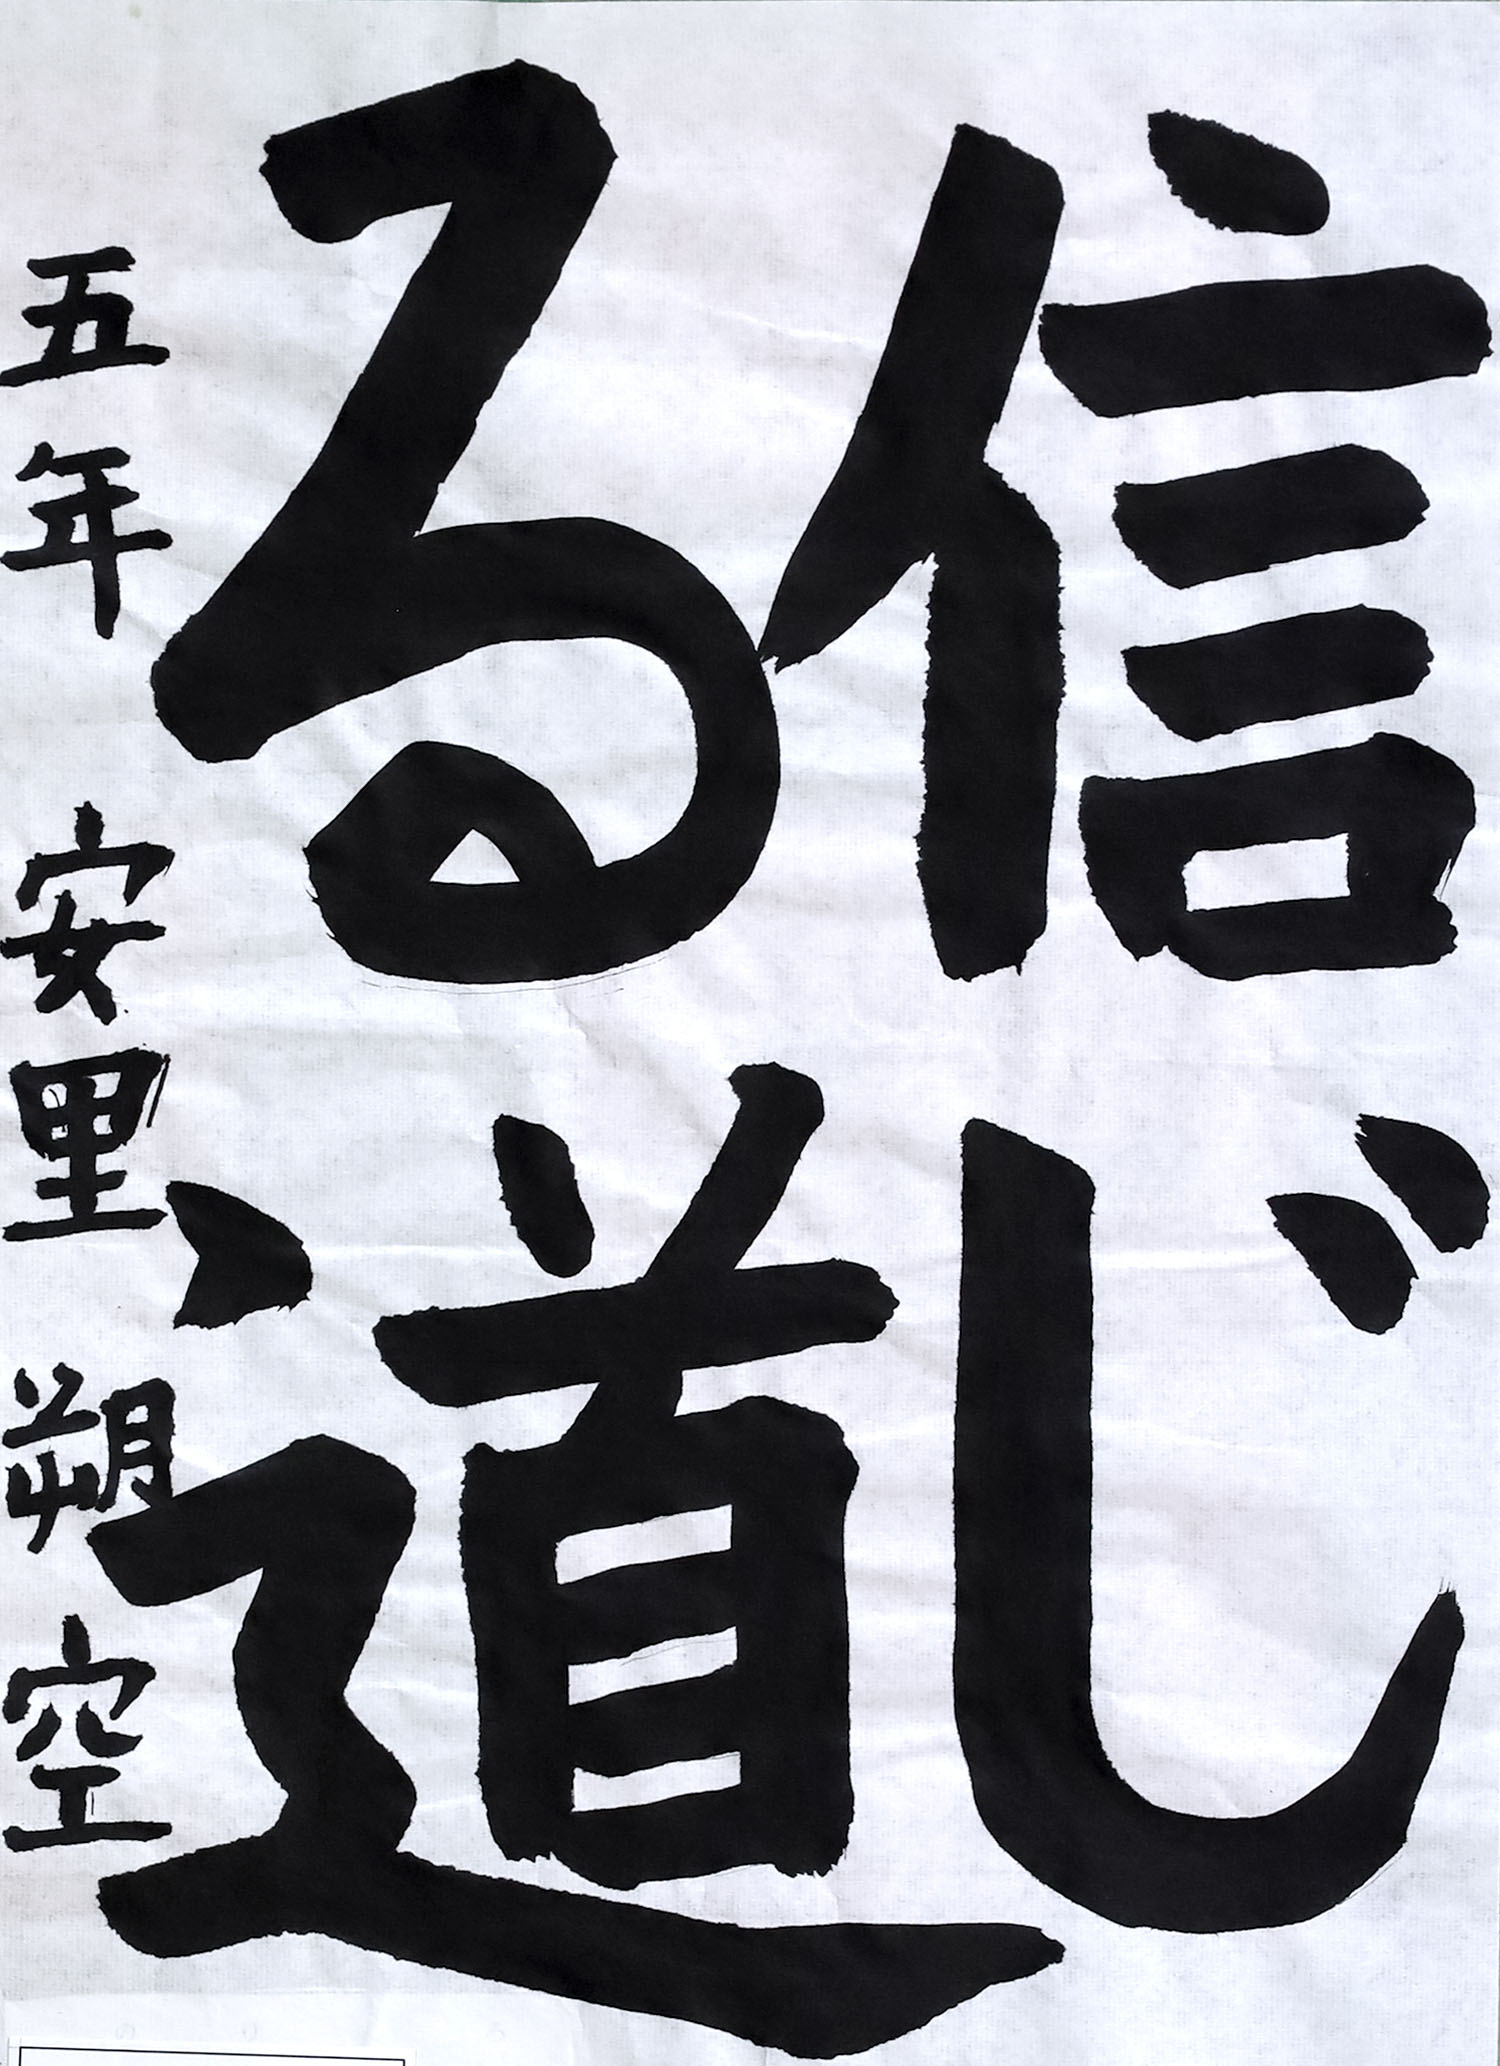 信じ
る道
五年 安里 朔空